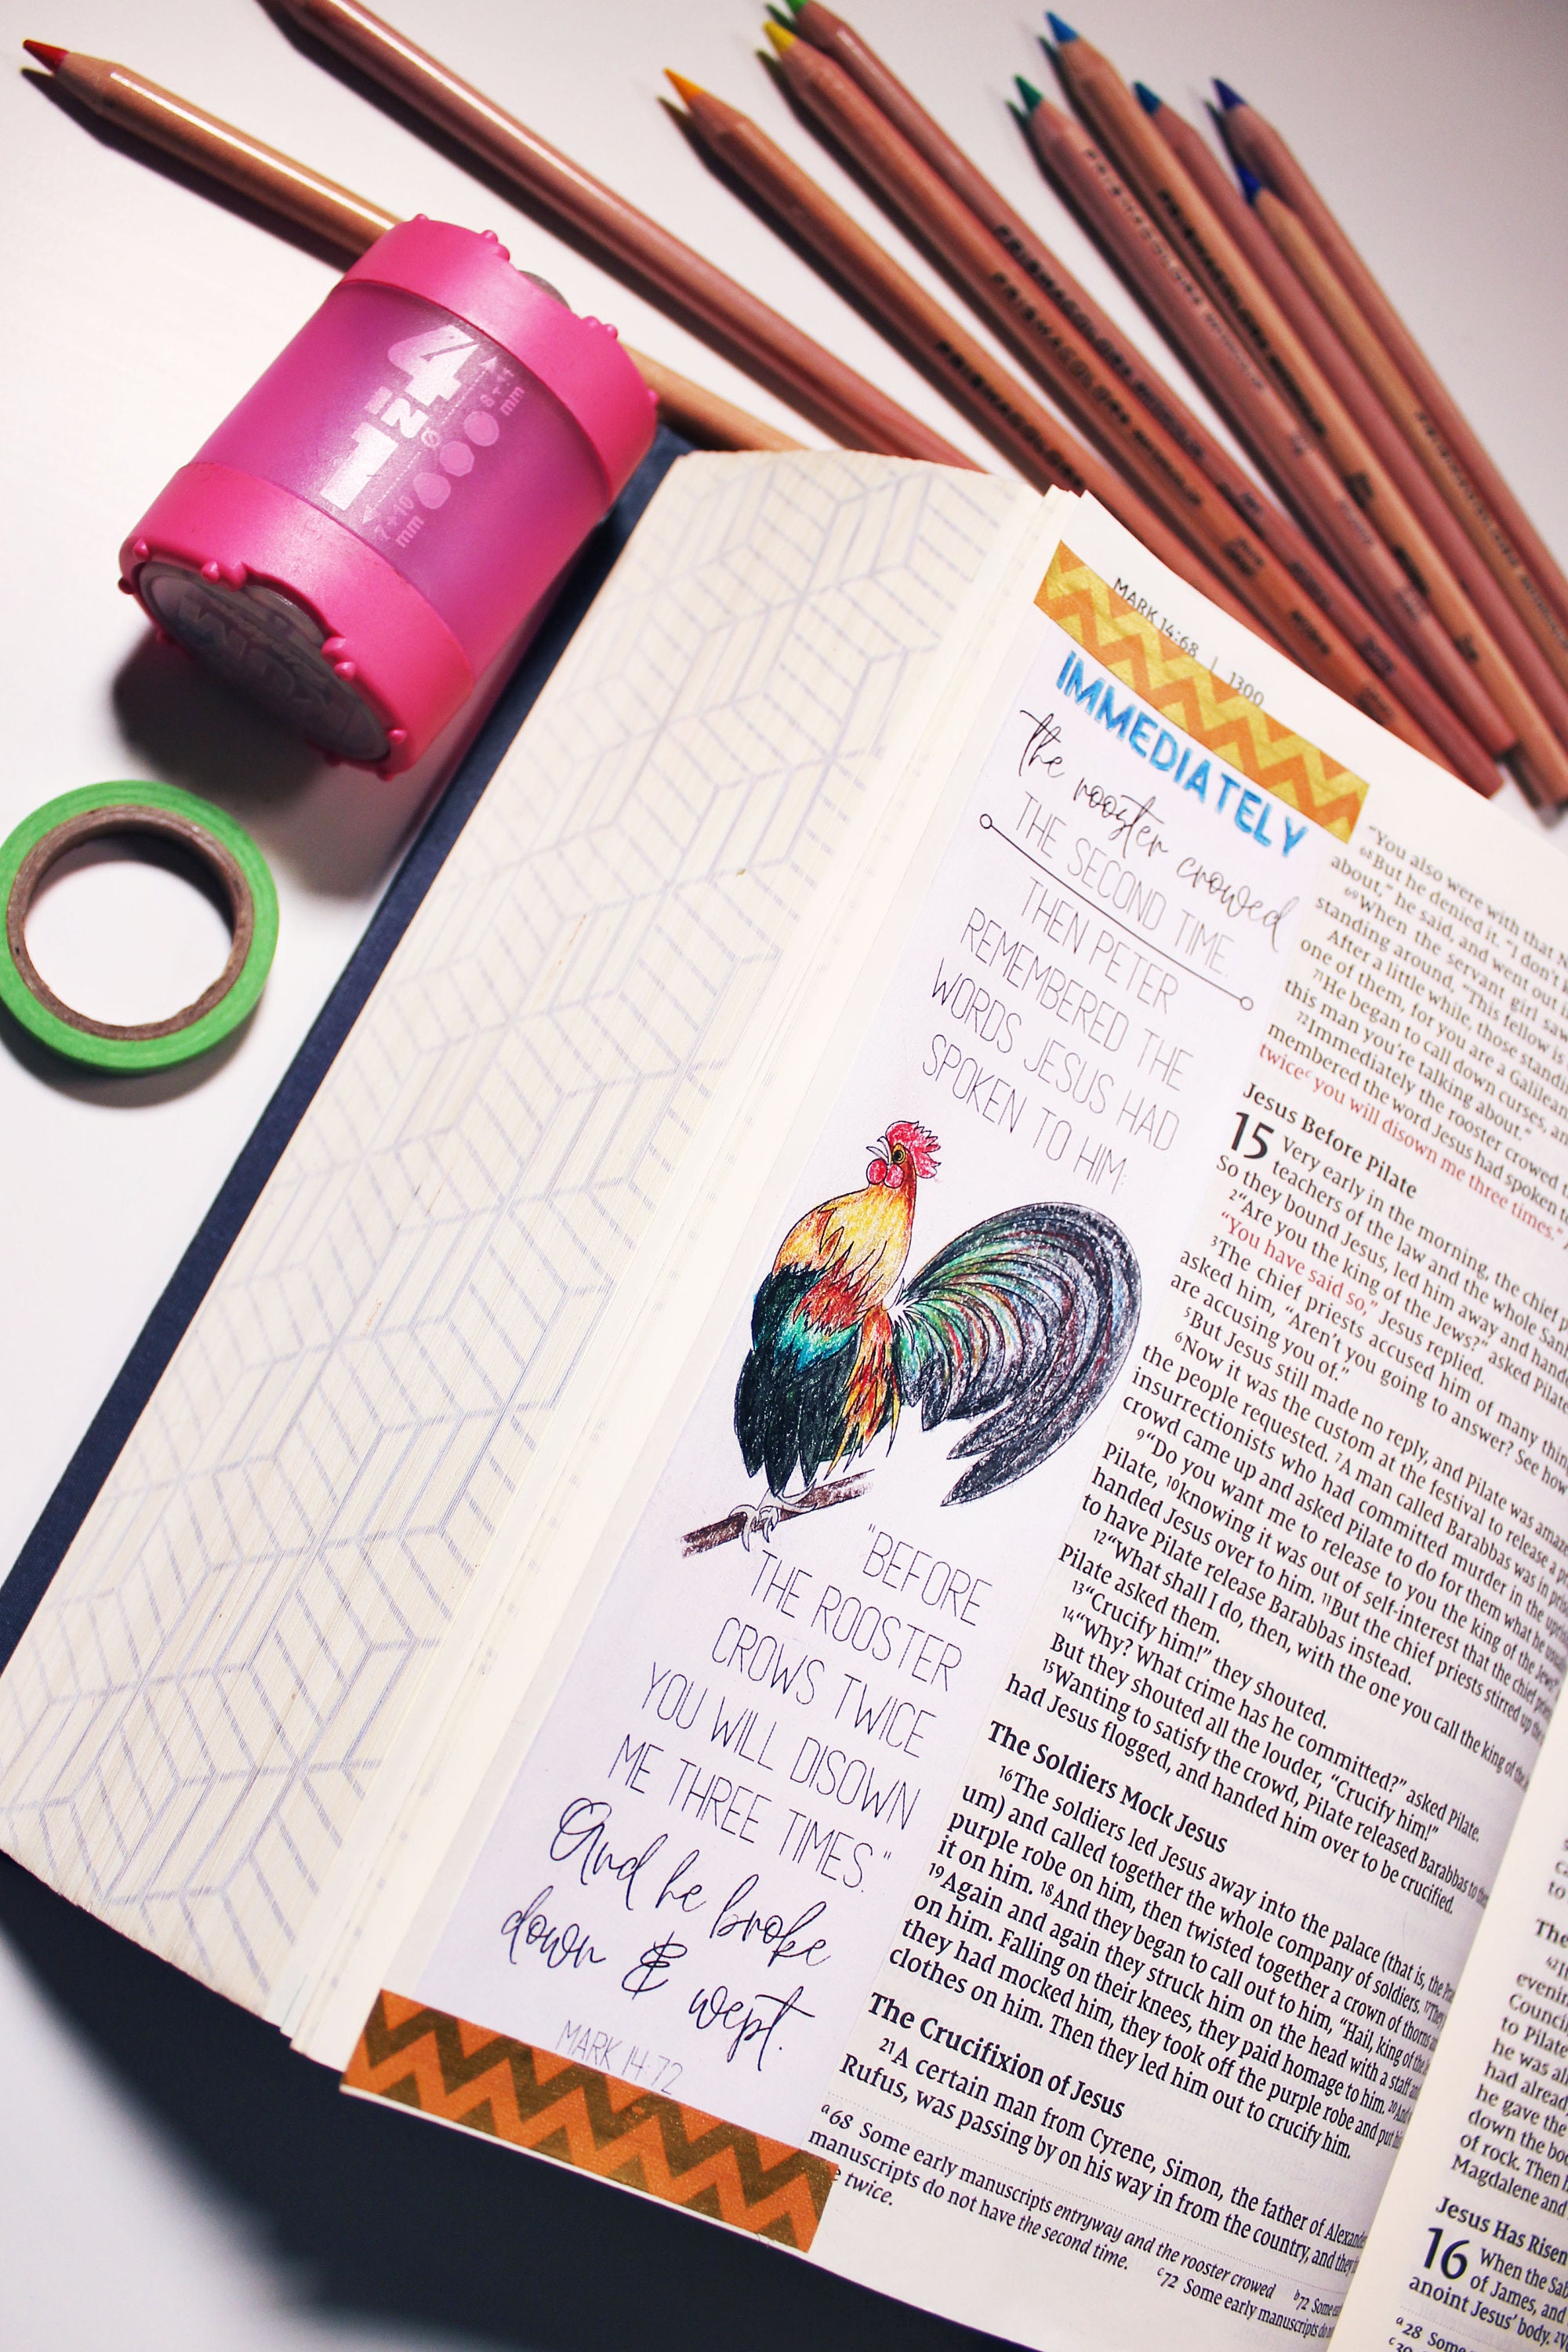 1-4
N2
Ø
8 → 11
mm
7 → 10
mm
PRISMACOLOR
PRISMACOLOR
PRISMACOLOR
MARK 14:68 | 1300
IMMEDIATELY
the rooster crowed
THE SECOND TIME.
THEN PETER
REMEMBERED THE
WORDS JESUS HAD
SPOKEN TO HIM:
"BEFORE
THE ROOSTER
CROWS TWICE
YOU WILL DISOWN
ME THREE TIMES."
And he broke
down & wept.
MARK 14:72
"You also were with that
68But he denied it. "I don't
about," he said, and went out
69When the servant girl saw
standing around, "This fellow is
After a little while, those standing
one of them, for you are a Galilean
71He began to call down curses,
this man you're talking about."
72Immediately the rooster crowed
membered the word Jesus had spoken
twicec you will disown me three times."
Jesus Before Pilate
15 Very early in the morning, the chief
teachers of the law and the whole
So they bound Jesus, led him away and
2"Are you the king of the Jews?" asked Pilate
"You have said so," Jesus replied.
3The chief priests accused him of many
asked him, "Aren't you going to answer? See how
are accusing you of."
5But Jesus still made no reply, and Pilate was
6Now it was the custom at the festival to release a
the people requested. 7A man called Barabbas was in
insurrectionists who had committed murder in the
crowd came up and asked Pilate to do for them what he
9"Do you want me to release to you the king of the
Pilate, 10knowing it was out of self-interest that the chief
handed Jesus over to him. 11But the chief priests stirred up
to have Pilate release Barabbas instead.
12"What shall I do, then, with the one you call the king of the
Pilate asked them.
13"Crucify him!" they shouted.
14"Why? What crime has he committed?" asked Pilate.
But they shouted all the louder, "Crucify him!"
15Wanting to satisfy the crowd, Pilate released Barabbas to
had Jesus flogged, and handed him over to be crucified.
The Soldiers Mock Jesus
16The soldiers led Jesus away into the palace (that is, the
um) and called together the whole company of soldiers. 17They
purple robe on him, then twisted together a crown of thorns
it on him. 18And they began to call out to him, "Hail, king of the
19Again and again they struck him on the head with a staff
on him. Falling on their knees, they paid homage to him. 20And
they had mocked him, they took off the purple robe and put
clothes on him. Then they led him out to crucify him.
The Crucifixion of Jesus
21A certain man from Cyrene, Simon, the father of
Rufus, was passing by on his way in from the country, and they
a68 Some early manuscripts entryway and the rooster crowed b72 Some
manuscripts do not have the second time. c72 Some early manuscripts do
twice.
The
42It
evening
Council
to Pilate
he was
had already
he gave the
down the
of rock. Then
Magdalene and
Jesus Has Risen
16 When the
of James, and
anoint Jesus' body.
a28 Some